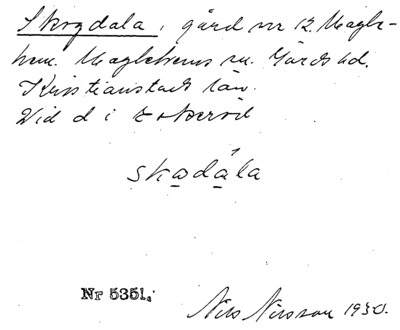 Skogdala, gård nr 12. Magle-
hem. Maglehems sn. Gärds hd.
Kristianstads län.
Vid d i
skọdạ́la
Nr 5351.
Nils Nilsson 1930.